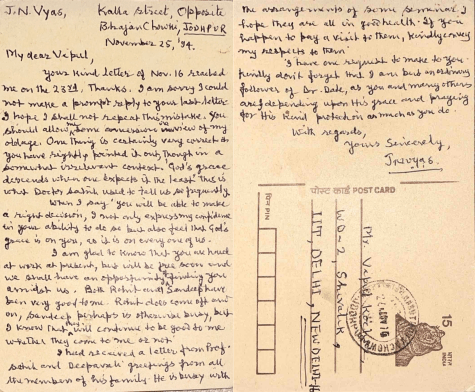 J.N. Vyas,
Kalla Street, Opposite
Bhajan Chowki, JODHPUR
November 25, '94.
My dear Vipul,
Your kind letter of Nov. 16 reached
me on the 23rd. Thanks. I am sorry I could
not make a prompt reply to your last letter
I hope I shall not repeat this mistake. You
should allow me some concession in view of my
old age. One thing is certainly very correct as
you have rightly pointed it out, though in a
somewhat irrelevant context. God's grace
descends when one expects it the least. This is
what Doctor Sahib used to tell us frequently.
When I say 'you will be able to make
a right decision, I not only express my confidence
in your ability to do so but also feel that God's
grace is on you, as it is on every one of us.
I am glad to know that you are hard
at work at present, but will be free soon and
we shall have an opportunity of finding you
amidst us. Both Rohit and Sandeep have
been very good to me. Rohit does come off and
on, Sandeep perhaps is otherwise busy, but
I know that will continue to be good to me
whether they come to me or not.
I had received a letter from Prof.
Sahib and Deepavali greetings from all
the members of his family. He is busy with
the arrangements of some seminar. I
hope they are all in good health. If you
happen to pay a visit to them, kindly convey
my respects to them.
I have one request to make to you.
Kindly don't forget that I am but an ordinary
follower of Dr. as you and many others
are, depending upon His grace and praying
for His kind protection as much as you do.
With regards,
Yours Sincerely,
JNVyas.
पोस्ट कार्ड POST CARD
पिन PIN
Mr. Vipul
WD-2, Shivalik,
IIT, DELHI, NEW DELHI-
15
भारत
INDIA